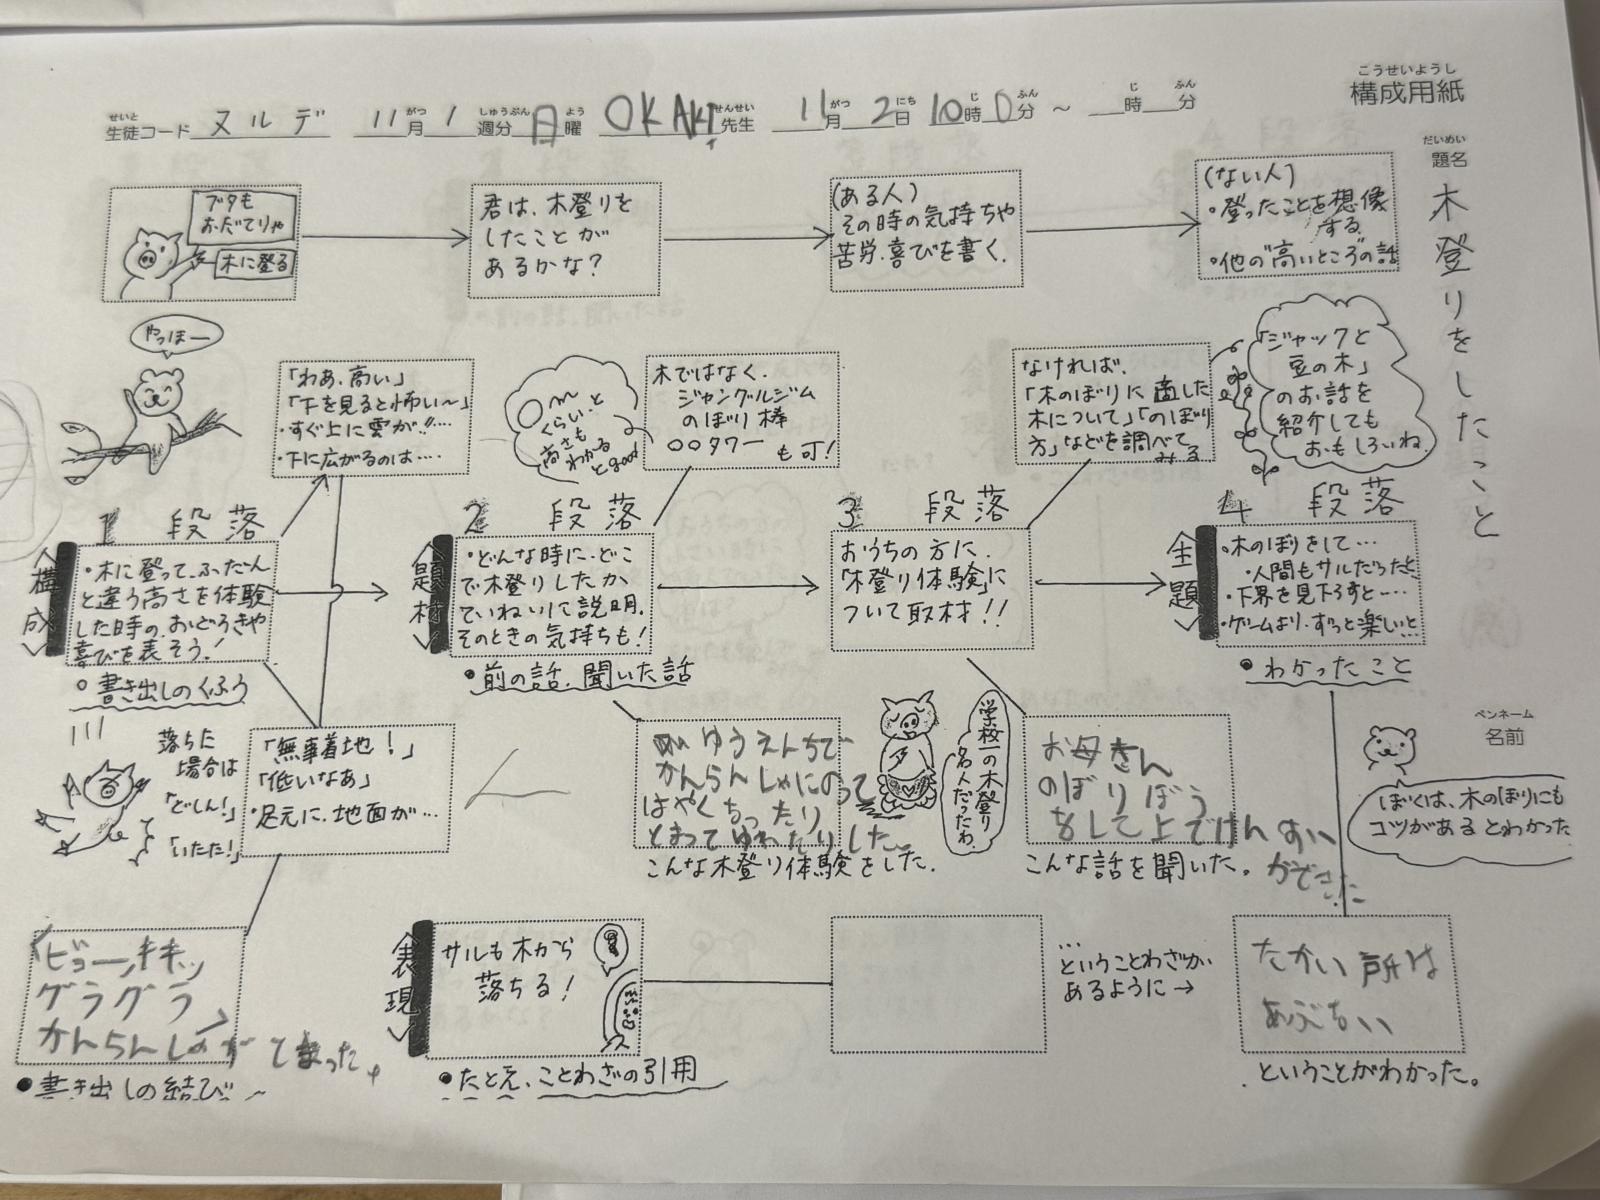 こうせいようし
構成用紙
せいと がつ しゅうぶん よう せんせい がつ にち じ ふん じ ふん
生徒コード ヌルデ 11月1週分 日曜 OKAKI先生 11月2日 10時0分 ～ 時 分
だいめい
題名
木登りをしたこと
ブタも
おだてりゃ
木に登る
君は、木登りを
したことが
あるかな？
(ある人)
その時の気持ちや
苦労・喜びを書く。
(ない人)
・登ったことを想像
する
・他の“高いところ”の話
やっほー
「わあ、高い」
「下を見ると怖い～」
・すぐ上に雲が!!…
・下に広がるのは‥‥
○m
くらい、と
高さも
わかる
とgood
木ではなく、
ジャングルジム
のぼり棒
○○タワー
も可！
なければ、
「木のぼりに適した
木について」「のぼり
方」などを調べて
みる
「ジャックと
豆の木」
のお話を
紹介しても
おもしろいね。
1 段落
<構成>
・木に登って、ふだん
と違う高さを体験
した時の、おどろきや
喜びを表そう！
○書き出しのくふう
2 段落
<題材>
・どんな時に、どこ
で木登りしたか
ていねいに説明。
そのときの気持ちも！
・前の話、聞いた話
3 段落
おうちの方に、
「木登り体験」に
ついて取材！！
4 段落
<主題>
・木のぼりをして…
人間もサルだったと
・下界を見下ろすと…
・ゲームより、ずっと楽しいと…
●わかったこと
落ちた
場合は
「どしん！」
「いたた！」
「無事着地！」
「低いなあ」
・足元に、地面が…
ゆうえんちで
かんらんしゃにのって
はやくちったり
とまってゆれたりした。
こんな木登り体験をした。
学校一の木登り
名人だったわ
お母さん
のぼりぼう
をして上でけんすい
ができた
こんな話を聞いた。
ペンネーム
名前
ぼくは、木のぼりにも
コツがあるとわかった
グラグラ
かんらんしゃが
●書き出しの結び～
<表現>
サルも木から
落ちる！
・たとえ、ことわざの引用
…
ということわざが
あるように→
たかい所は
あぶない
ということがわかった。